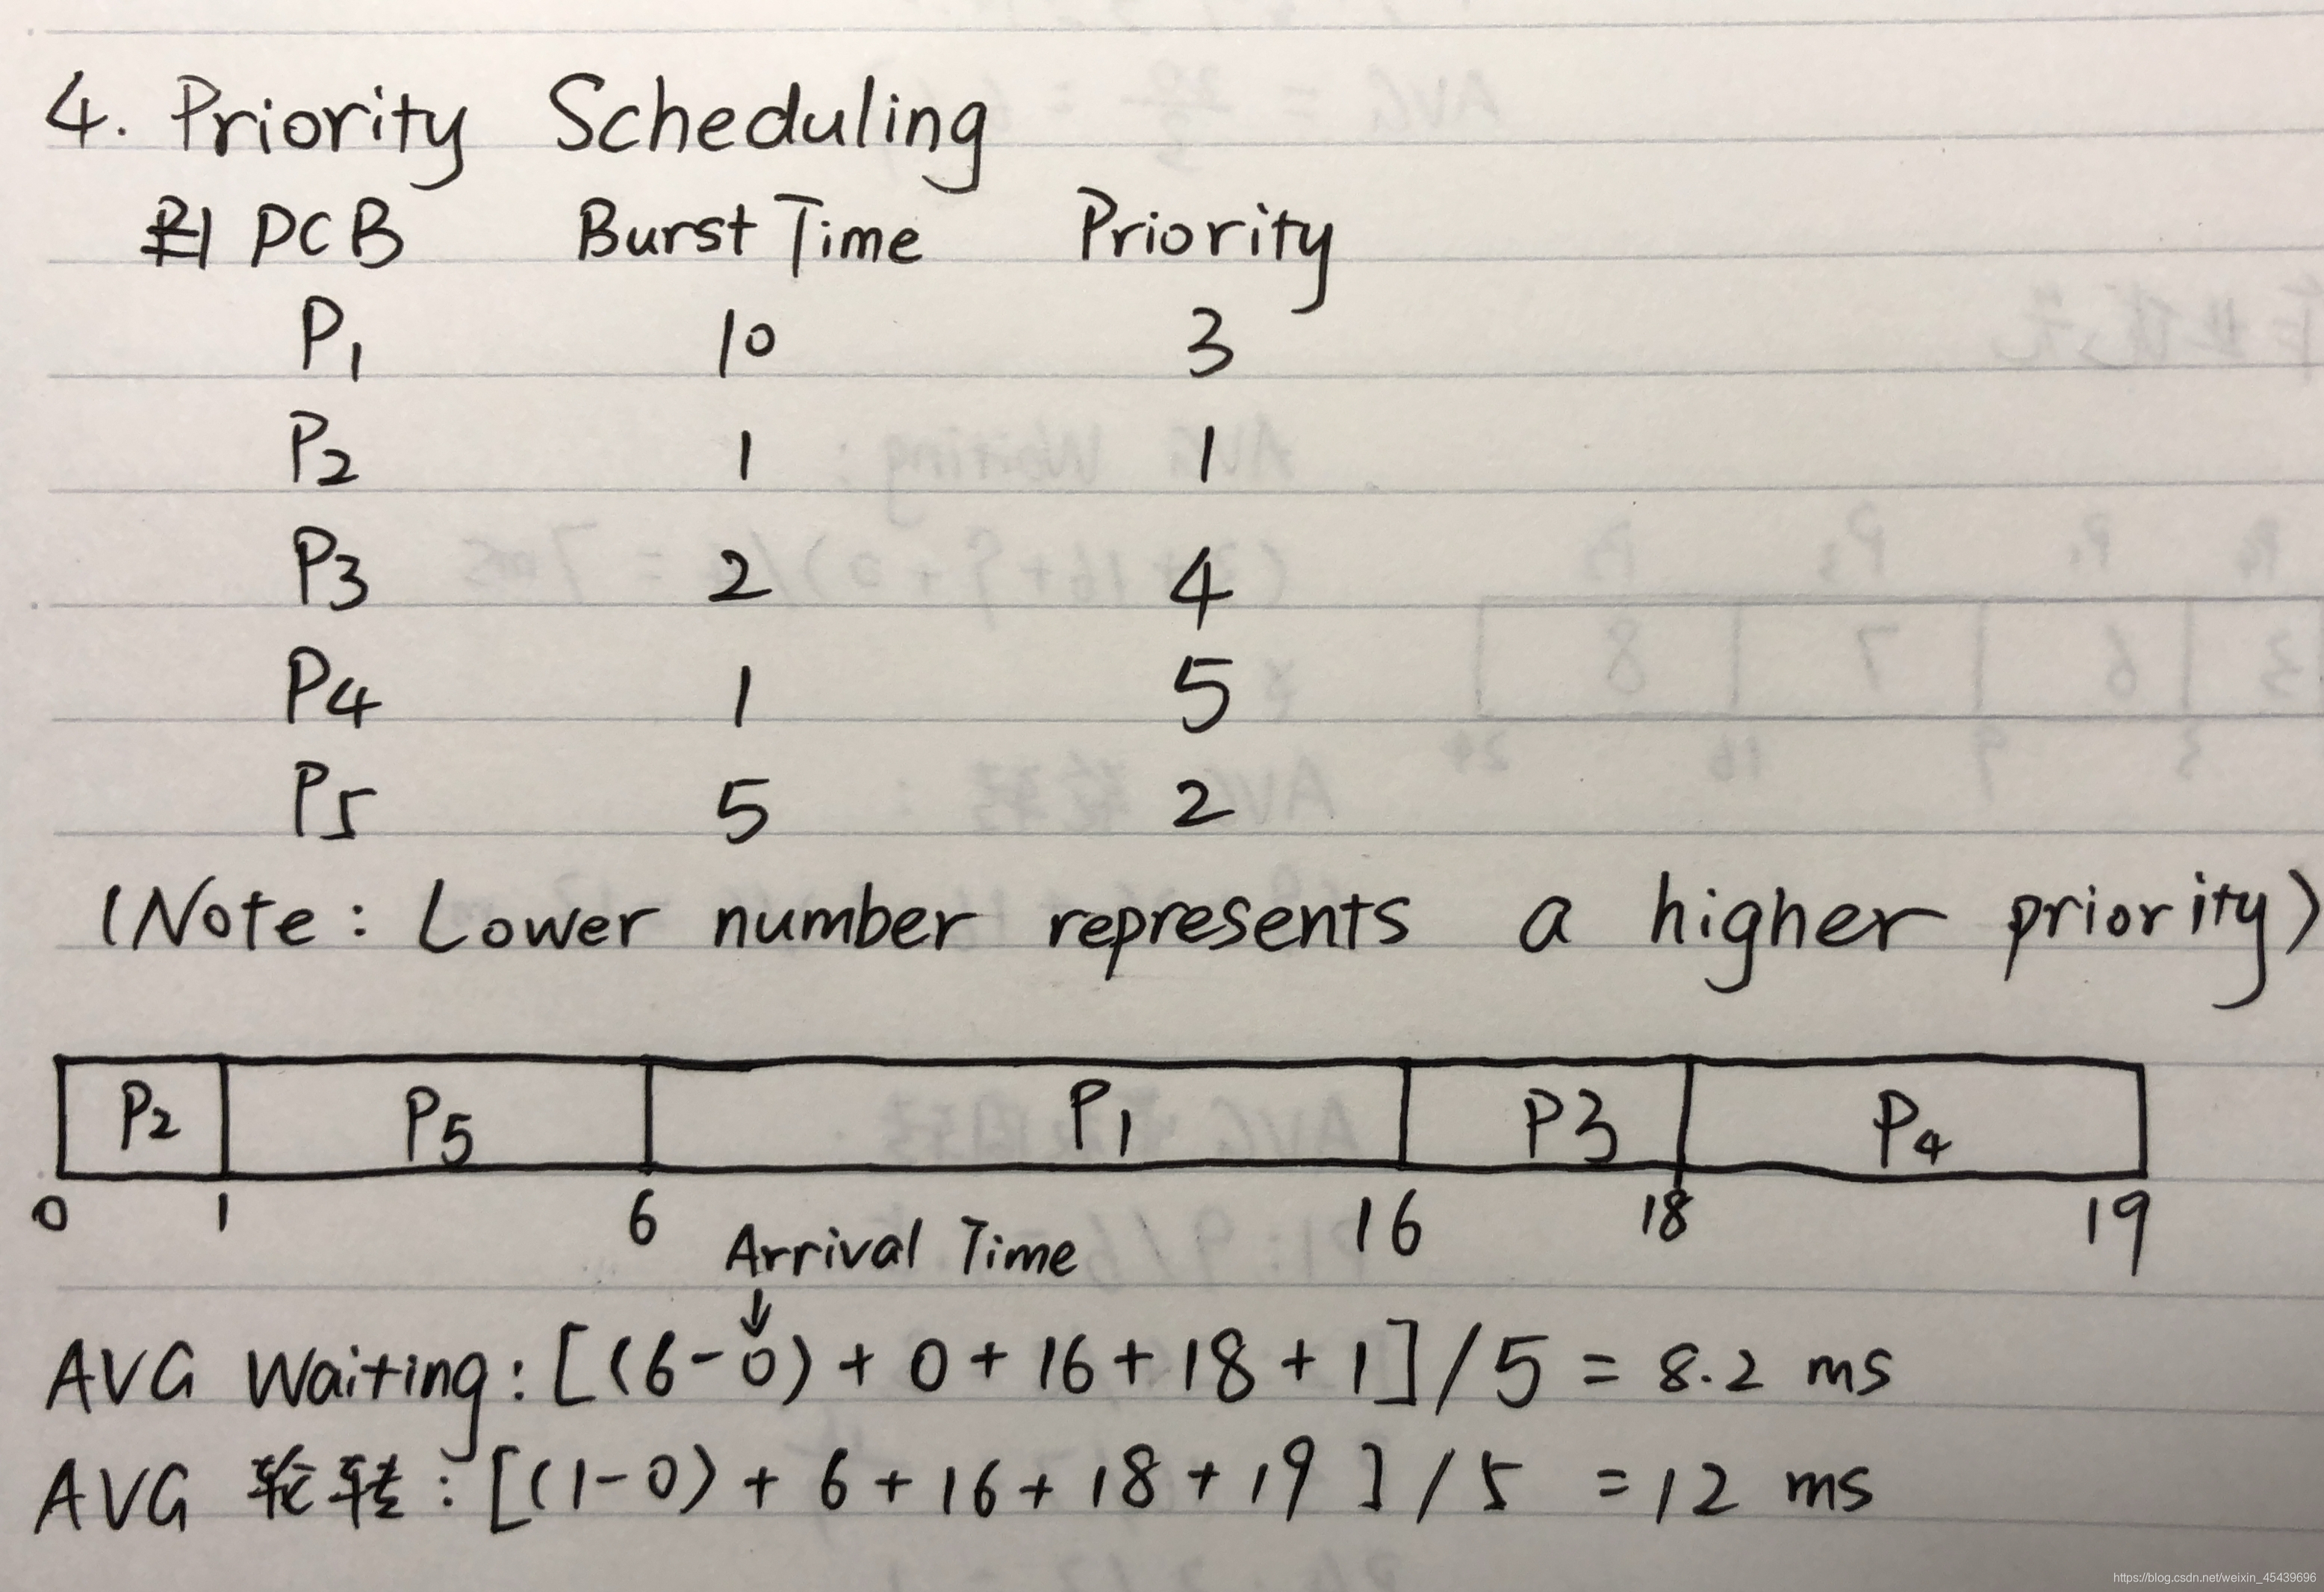 4. Priority Scheduling
PCB Burst Time Priority
P1 10 3
P2 1 1
P3 2 4
P4 1 5
P5 5 2
(Note: Lower number represents a higher priority)
P2 P5 P1 P3 P4
0 1 6 16 18 19
Arrival Time
↓
AVG Waiting: [(6-0) + 0 + 16 + 18 + 1] / 5 = 8.2 ms
AVG 轮转: [(1-0) + 6 + 16 + 18 + 19] / 5 = 12 ms
https://blog.csdn.net/weixin_45439696